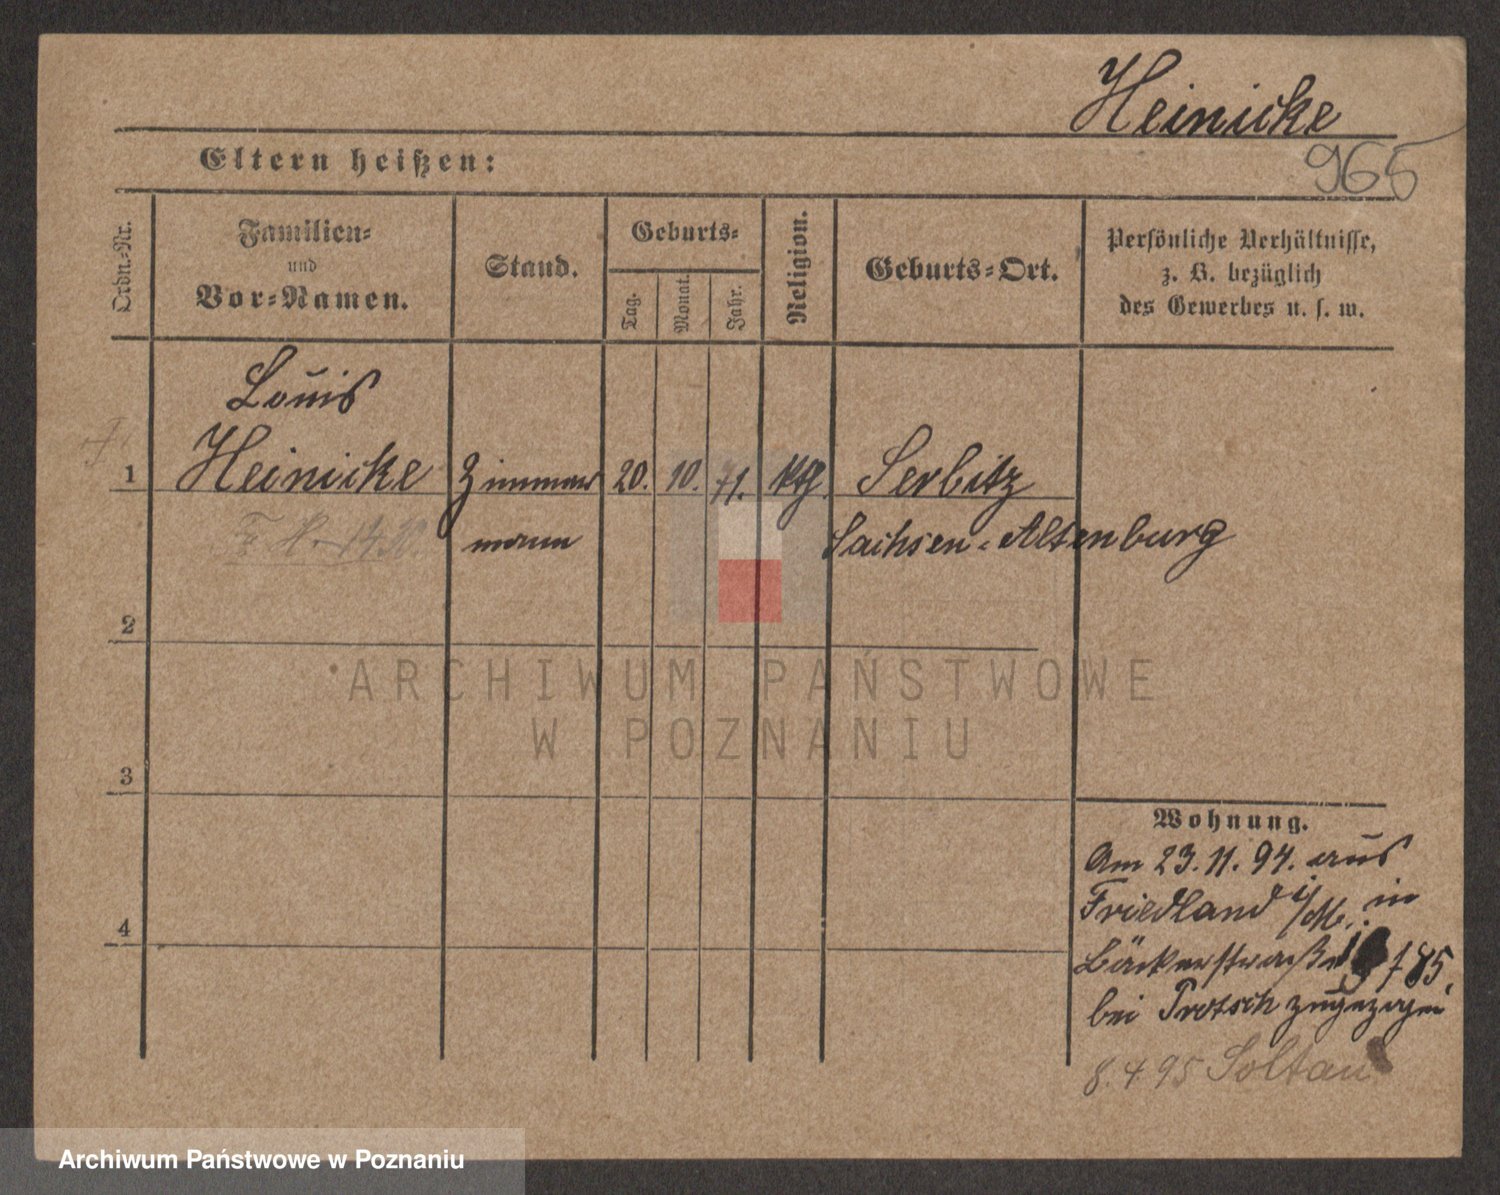 Heinicke
965
Eltern heißen:
Ordn.-Nr.
Familien-
und
Vor-Namen.
Stand.
Geburts-
Tag.
Monat.
Jahr.
Religion.
Geburts-Ort.
Persönliche Verhältnisse,
z. B. bezüglich
des Gewerbes u. s. w.
Louis
1 Heinicke Zimmer 20. 10. 71. Serbitz
mann Sachsen-Altenburg
2
3
4
Wohnung.
Am 23.11.94. aus
Friedland i/M. in
Bäckerstraße 785,
bei Protsch zugezogen
8.4 95 Soltau
ARCHIWUM PAŃSTWOWE
W POZNANIU
Archiwum Państwowe w Poznaniu